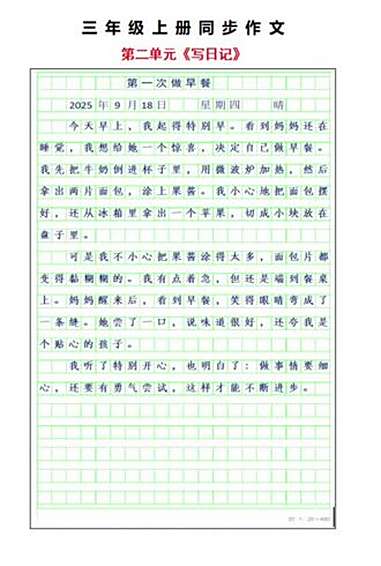 三年级上册同步作文
第二单元《写日记》
第一次做早餐
2025年9月18日 星期四 晴
今天早上，我起得特别早。看到妈妈还在
睡觉，我想给她一个惊喜，决定自己做早餐。
我先把牛奶倒进杯子里，用微波炉加热，然后
拿出两片面包，涂上果酱。我小心地把面包摆
好，还从冰箱里拿出一个苹果，切成小块放在
盘子里。
可是我不小心把果酱涂得太多，面包片都
变得黏糊糊的。我有点着急，但还是端到餐桌
上。妈妈醒来后，看到早餐，笑得眼睛弯成了
一条缝。她尝了一口，说味道很好，还夸我是
个贴心的孩子。
我听了特别开心，也明白了：做事情要细
心，还要有勇气尝试，这样才能不断进步。